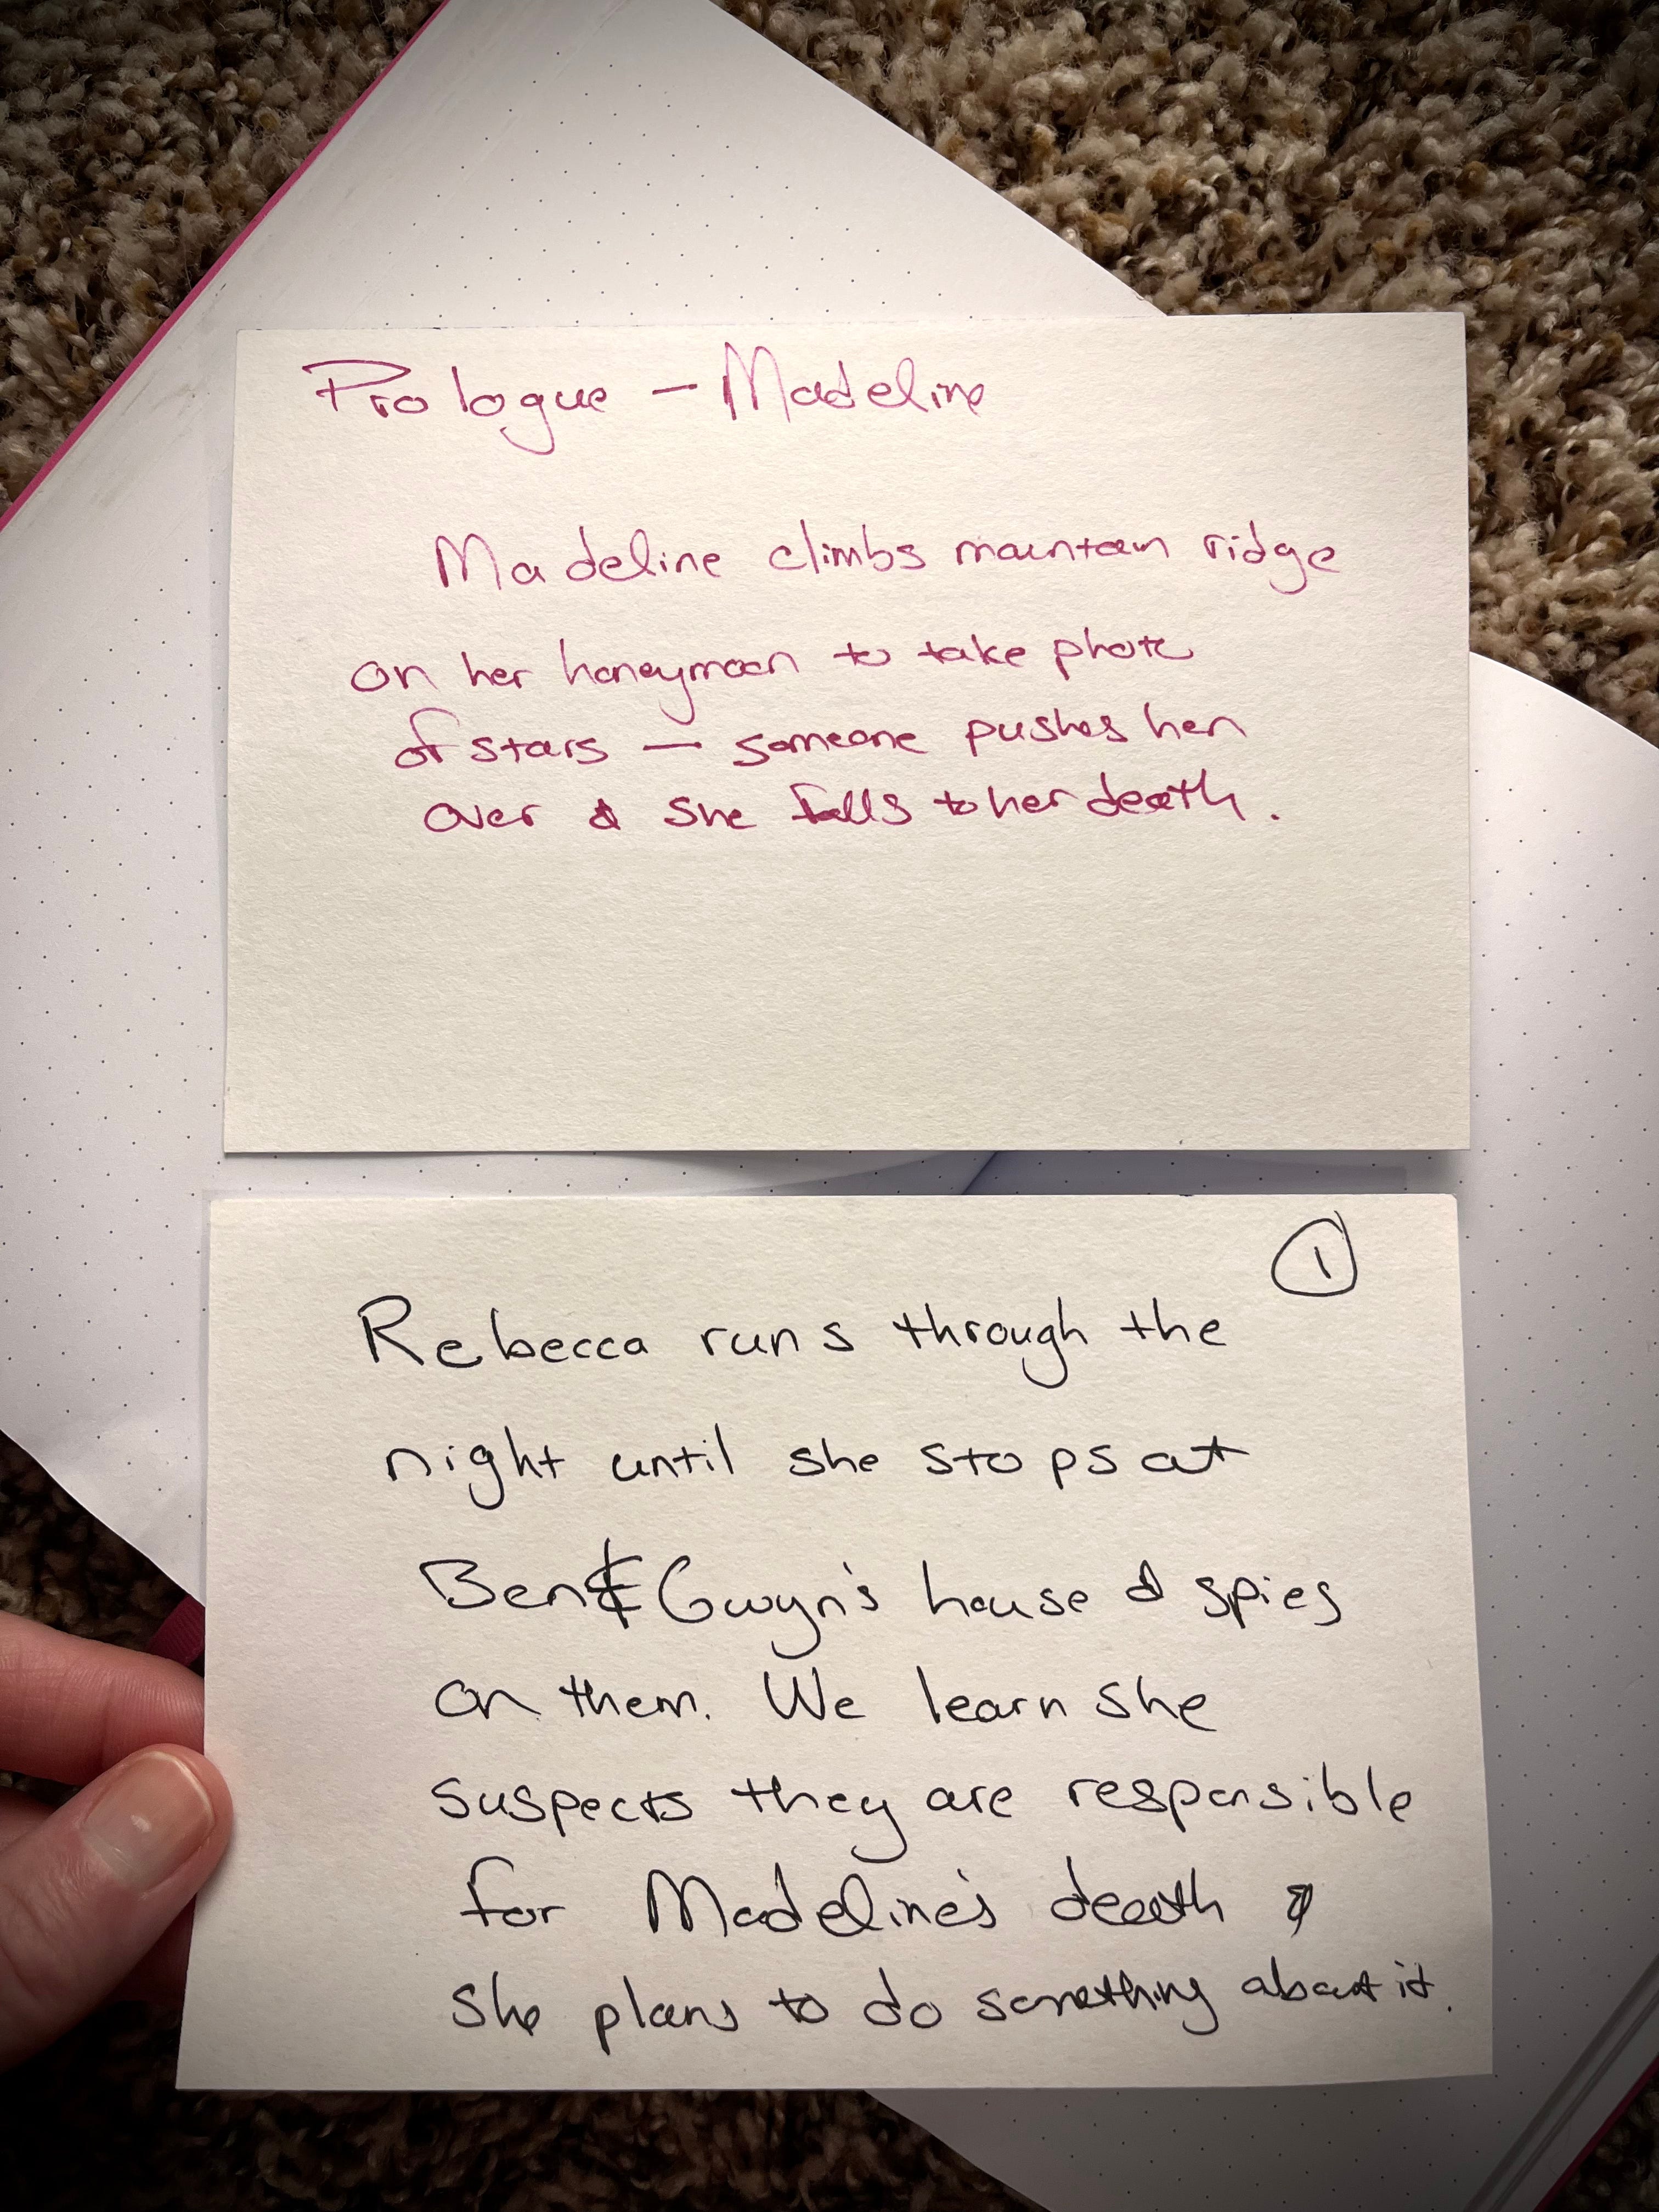 Prologue – Madeline
Madeline climbs mountain ridge
on her honeymoon to take photo
of stars — someone pushes her
over & she falls to her death.
1
Rebecca runs through the
night until she stops at
Ben & Gwyn's house & spies
on them. We learn she
suspects they are responsible
for Madeline's death &
she plans to do something about it.